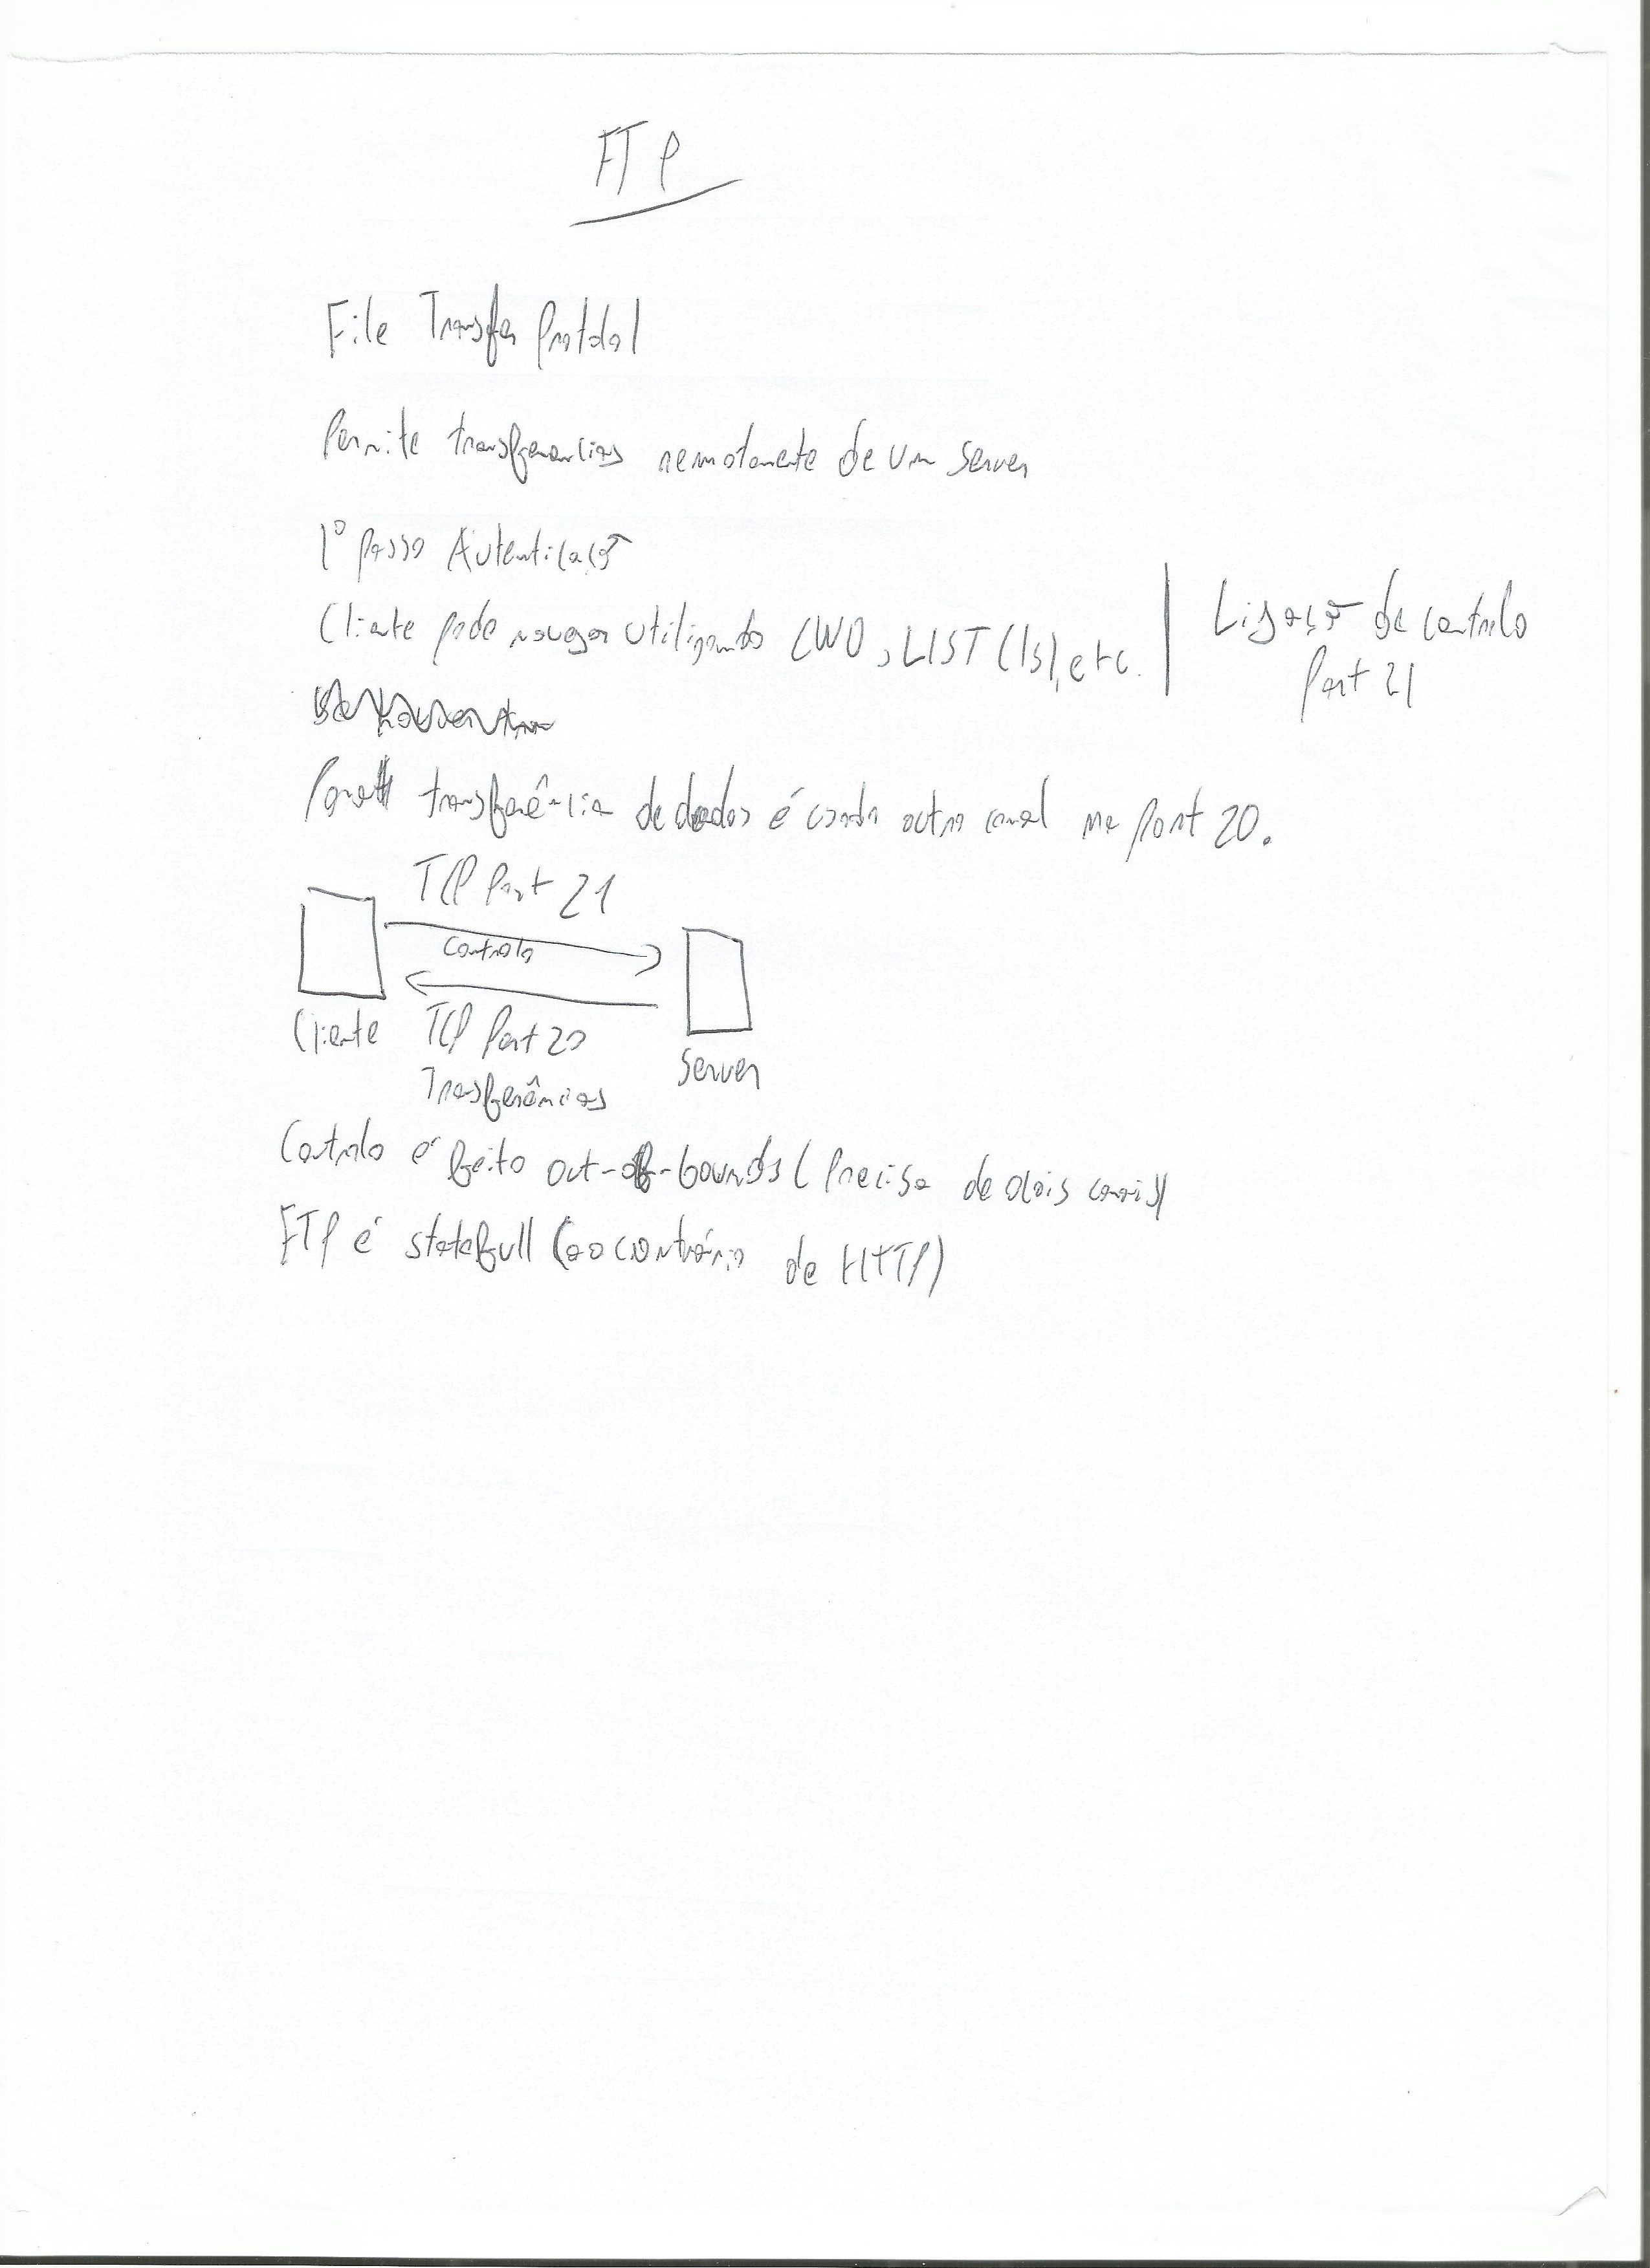 FTP
File Transfer Protocol
Permite transferencias remotamente de um server
1º passo Autenticação
Cliente pode navegar utilizando CWD, LIST (ls), etc. | Ligação de controlo
Port 21
Para transferência de dados é usado outro canal na port 20.
TCP Port 21
Controlo
Cliente TCP Port 20
Server
Trasferências
Controlo é feito out-of-bounds (Precisa de dois canais)
FTP é statefull (ao contrário de HTTP)